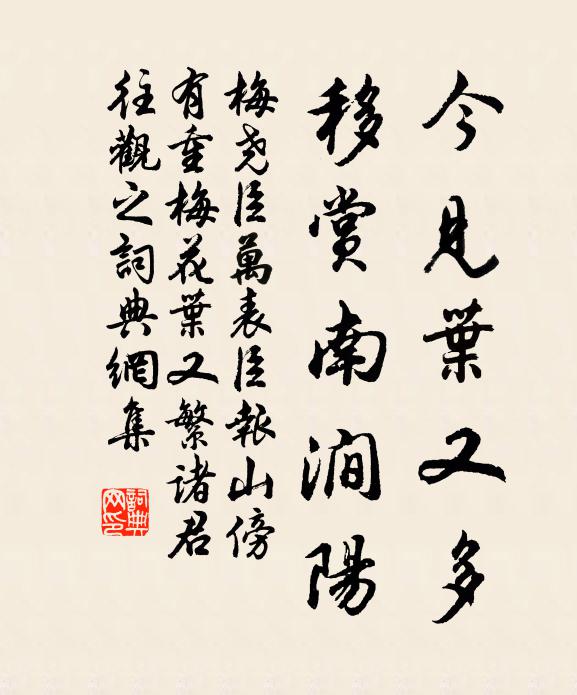 今見葉又多
移賞南澗陽
梅堯臣萬表臣報山傍
有重梅花葉又繁諸君
往觀之詞典網集
詞典
网印